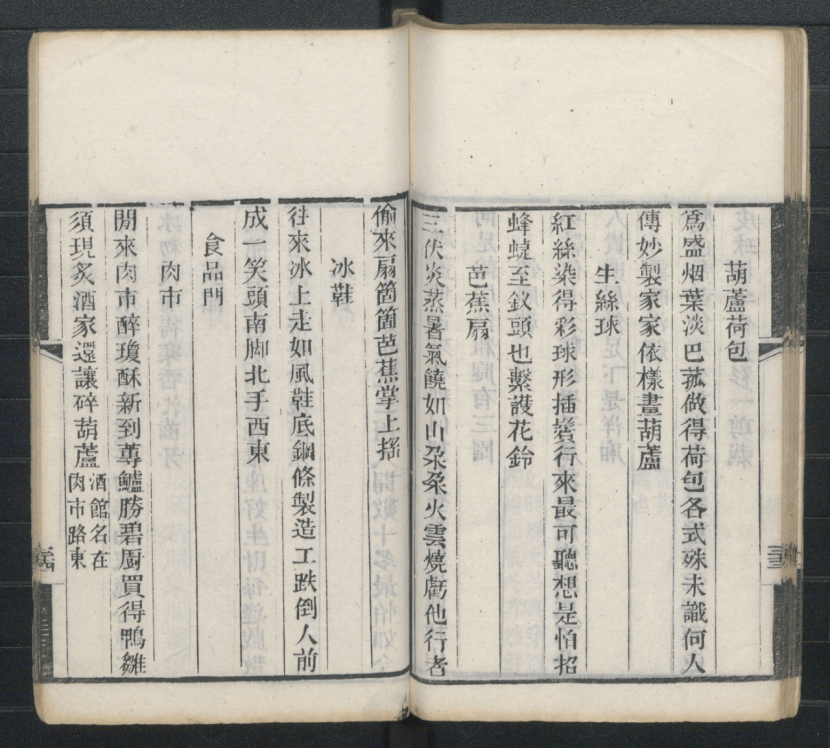 葫蘆荷包
爲盛烟葉淡巴菰做得荷包各式殊未識何人
傳妙製家家依樣畫葫蘆
生絲球
紅絲染得彩球形插鬢行來最可聽想是怕招
蜂蜨至釵頭也繫護花鈴
芭蕉扇
三伏炎蒸暑氣饒如山朶朶火雲燒虧他行者
偷來扇箇箇芭蕉掌上搖
冰鞋
往來冰上走如風鞋底鋼條製造工跌倒人前
成一笑頭南脚北手西東
食品門
肉市
閒來肉市醉瓊酥新到蓴鱸勝碧厨買得鴨雛
須現炙酒家還讓碎葫蘆酒館名在
肉市路東